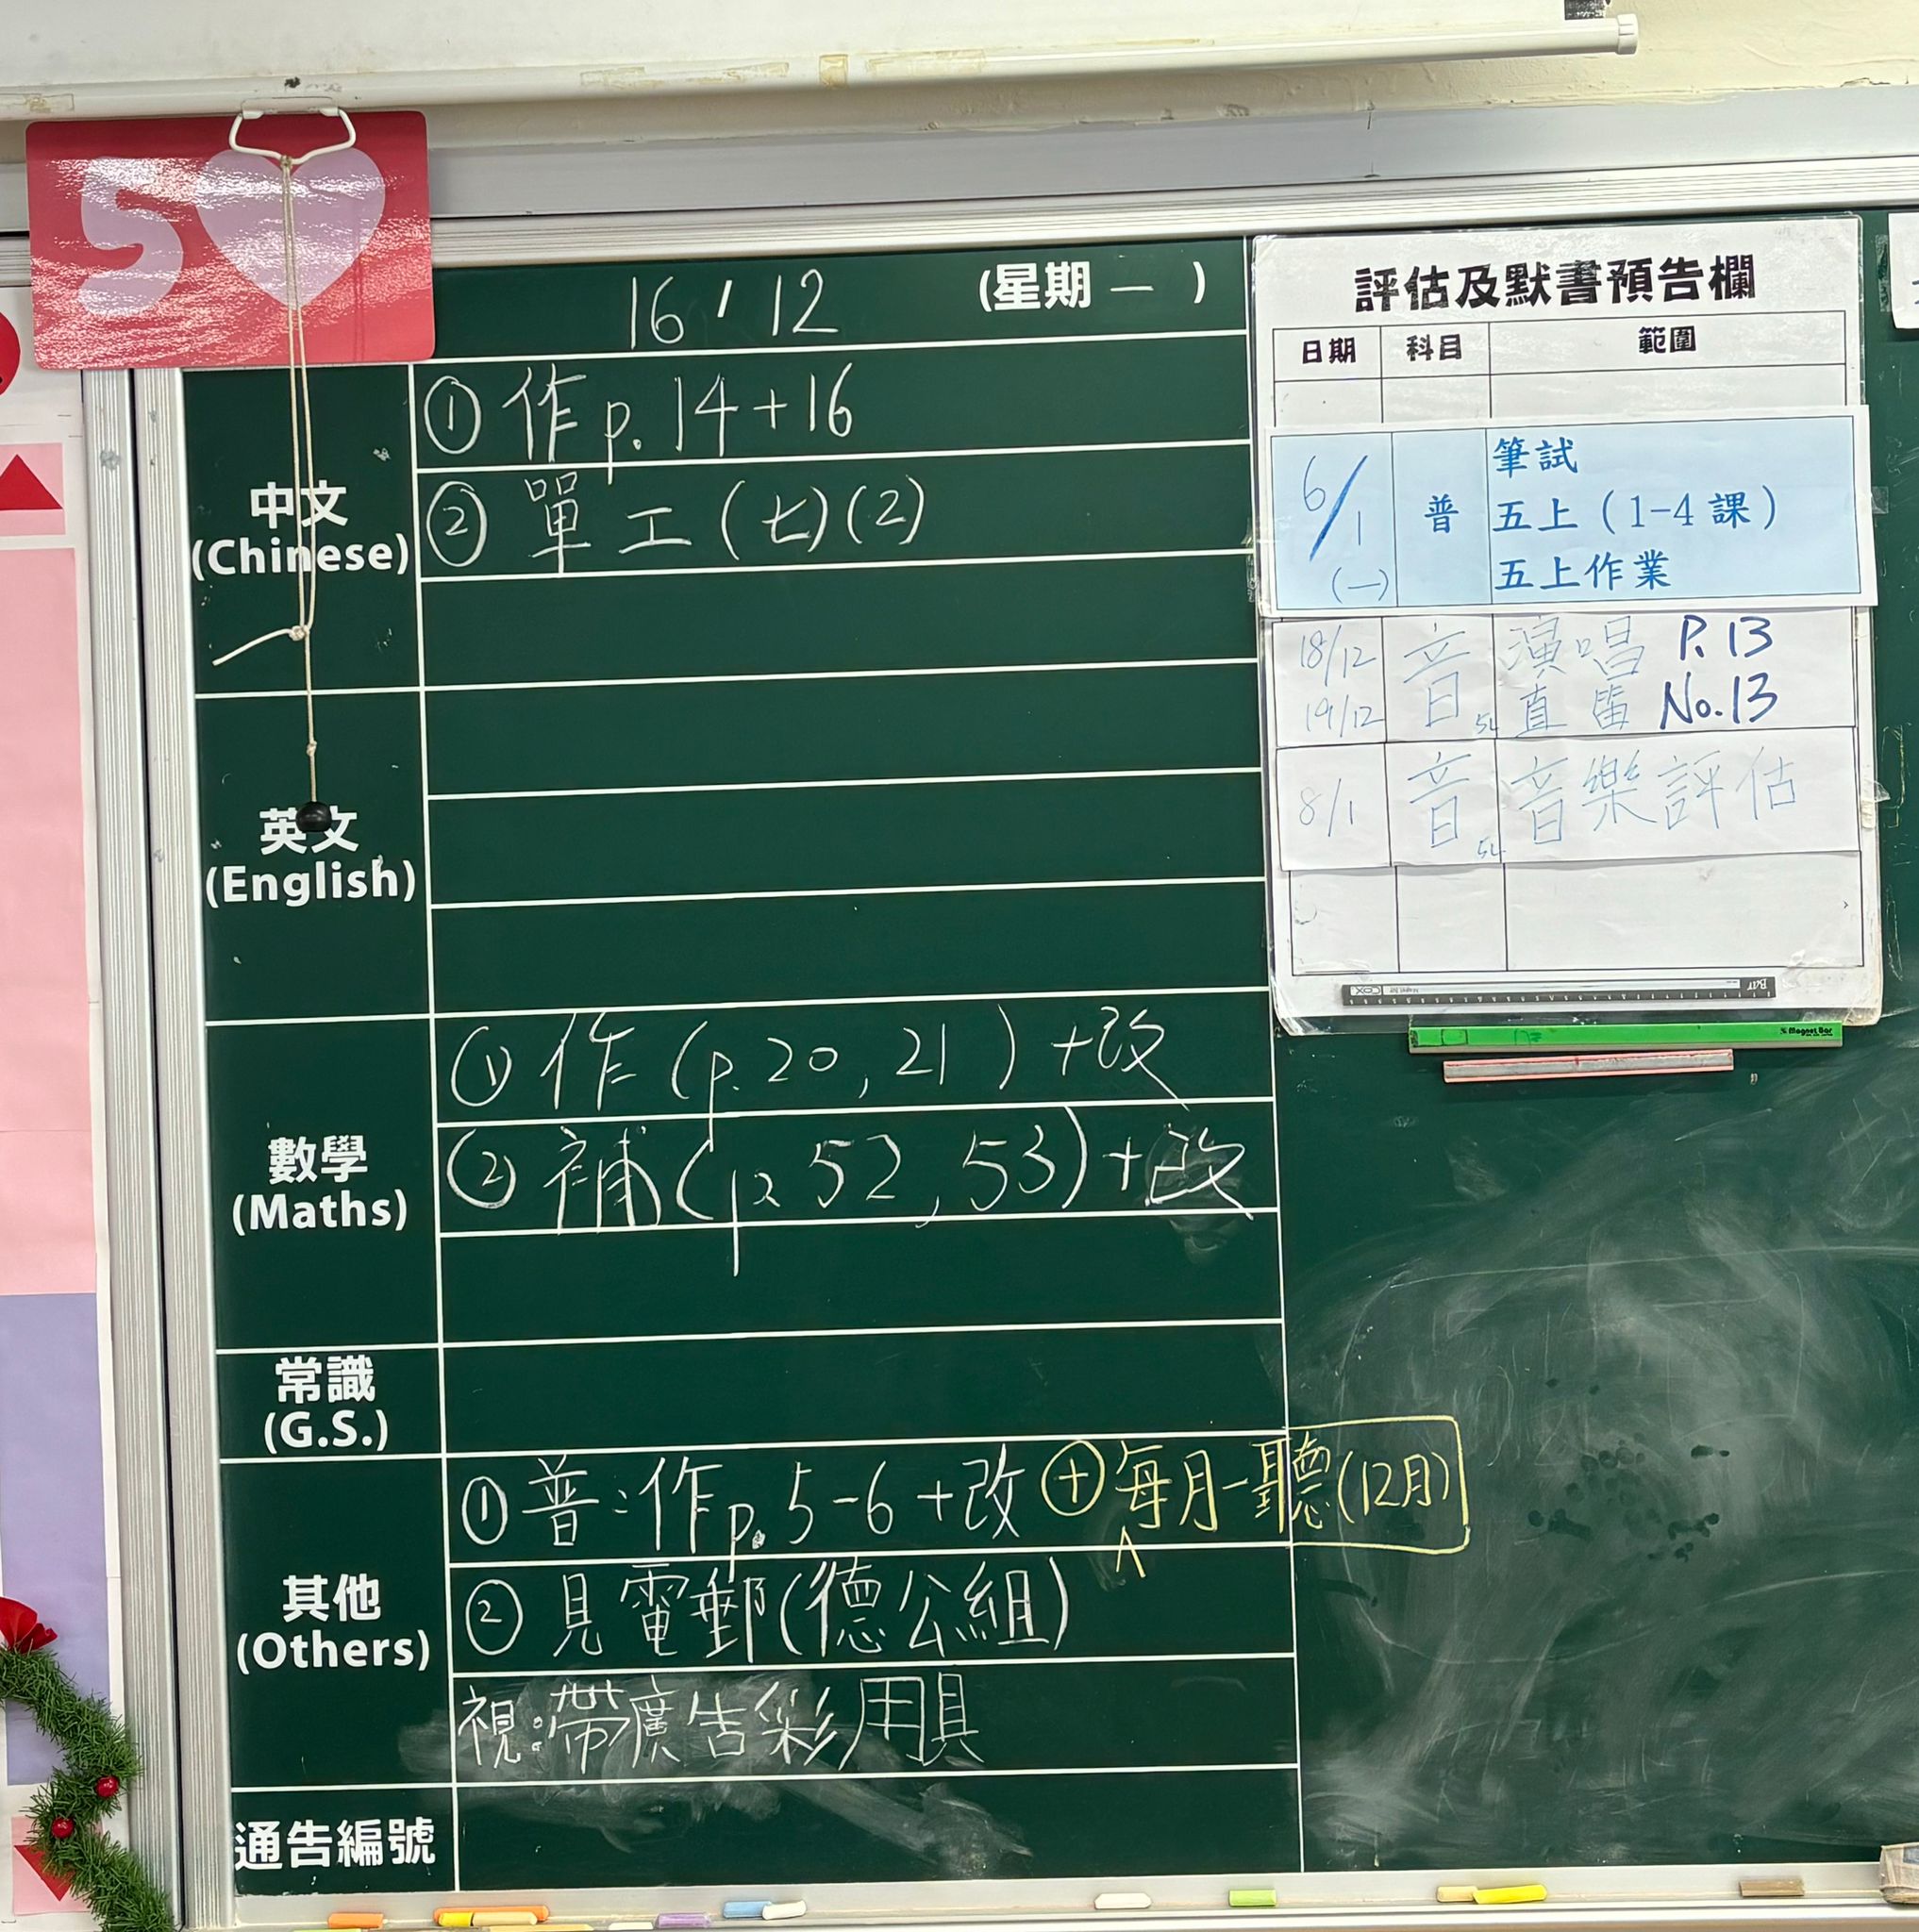 5
16 / 12 (星期 一 )
中文
(Chinese)
① 作 p. 14 + 16
② 單工 (七) (2)
英文
(English)
數學
(Maths)
① 作 (p. 20, 21) + 改
② 補 (p. 52, 53) + 改
常識
(G.S.)
其他
(Others)
① 普:作 p. 5-6 + 改 ⊕ 每月一聽 (12月)
② 見電郵 (德公組)
視:帶廣告彩用具
通告編號
評估及默書預告欄
日期 科目 範圍
6/1 (一) 普 筆試
五上 (1-4 課)
五上作業
18/12 音 演唱 P. 13
19/12 5L 直笛 No. 13
8/1 音 5L 音樂評估
Magnet Bar